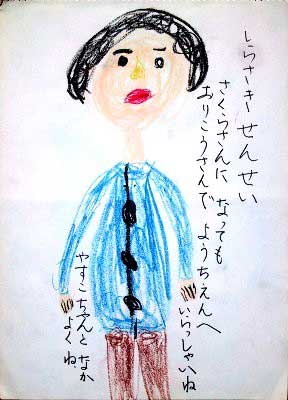 しらさきせんせい
さくらさんに なっても
おりこうさんで ようちえんへ
いらっしゃいね
やすこちゃんと なか
よくね。